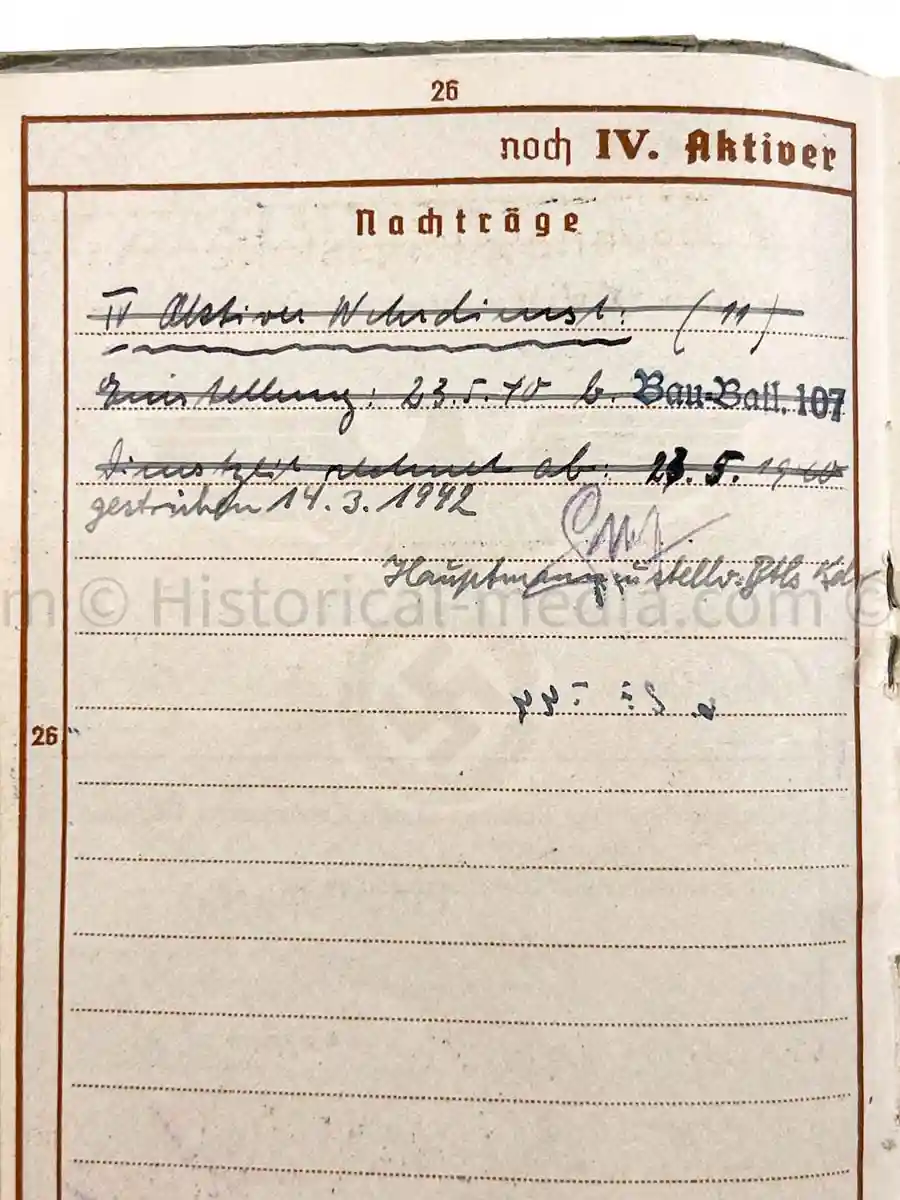 26
noch IV. Aktiver
Nachträge
IV Aktiver Wehrdienst: (11)
Einstellung: 23.5.40 b. Bau-Batl. 107
Dienstzeit rechnet ab: 23.5.1940
gestrichen 14.3.1942
Hauptmann u stellv. Btls Kdr
© Historical-media.com ©
26